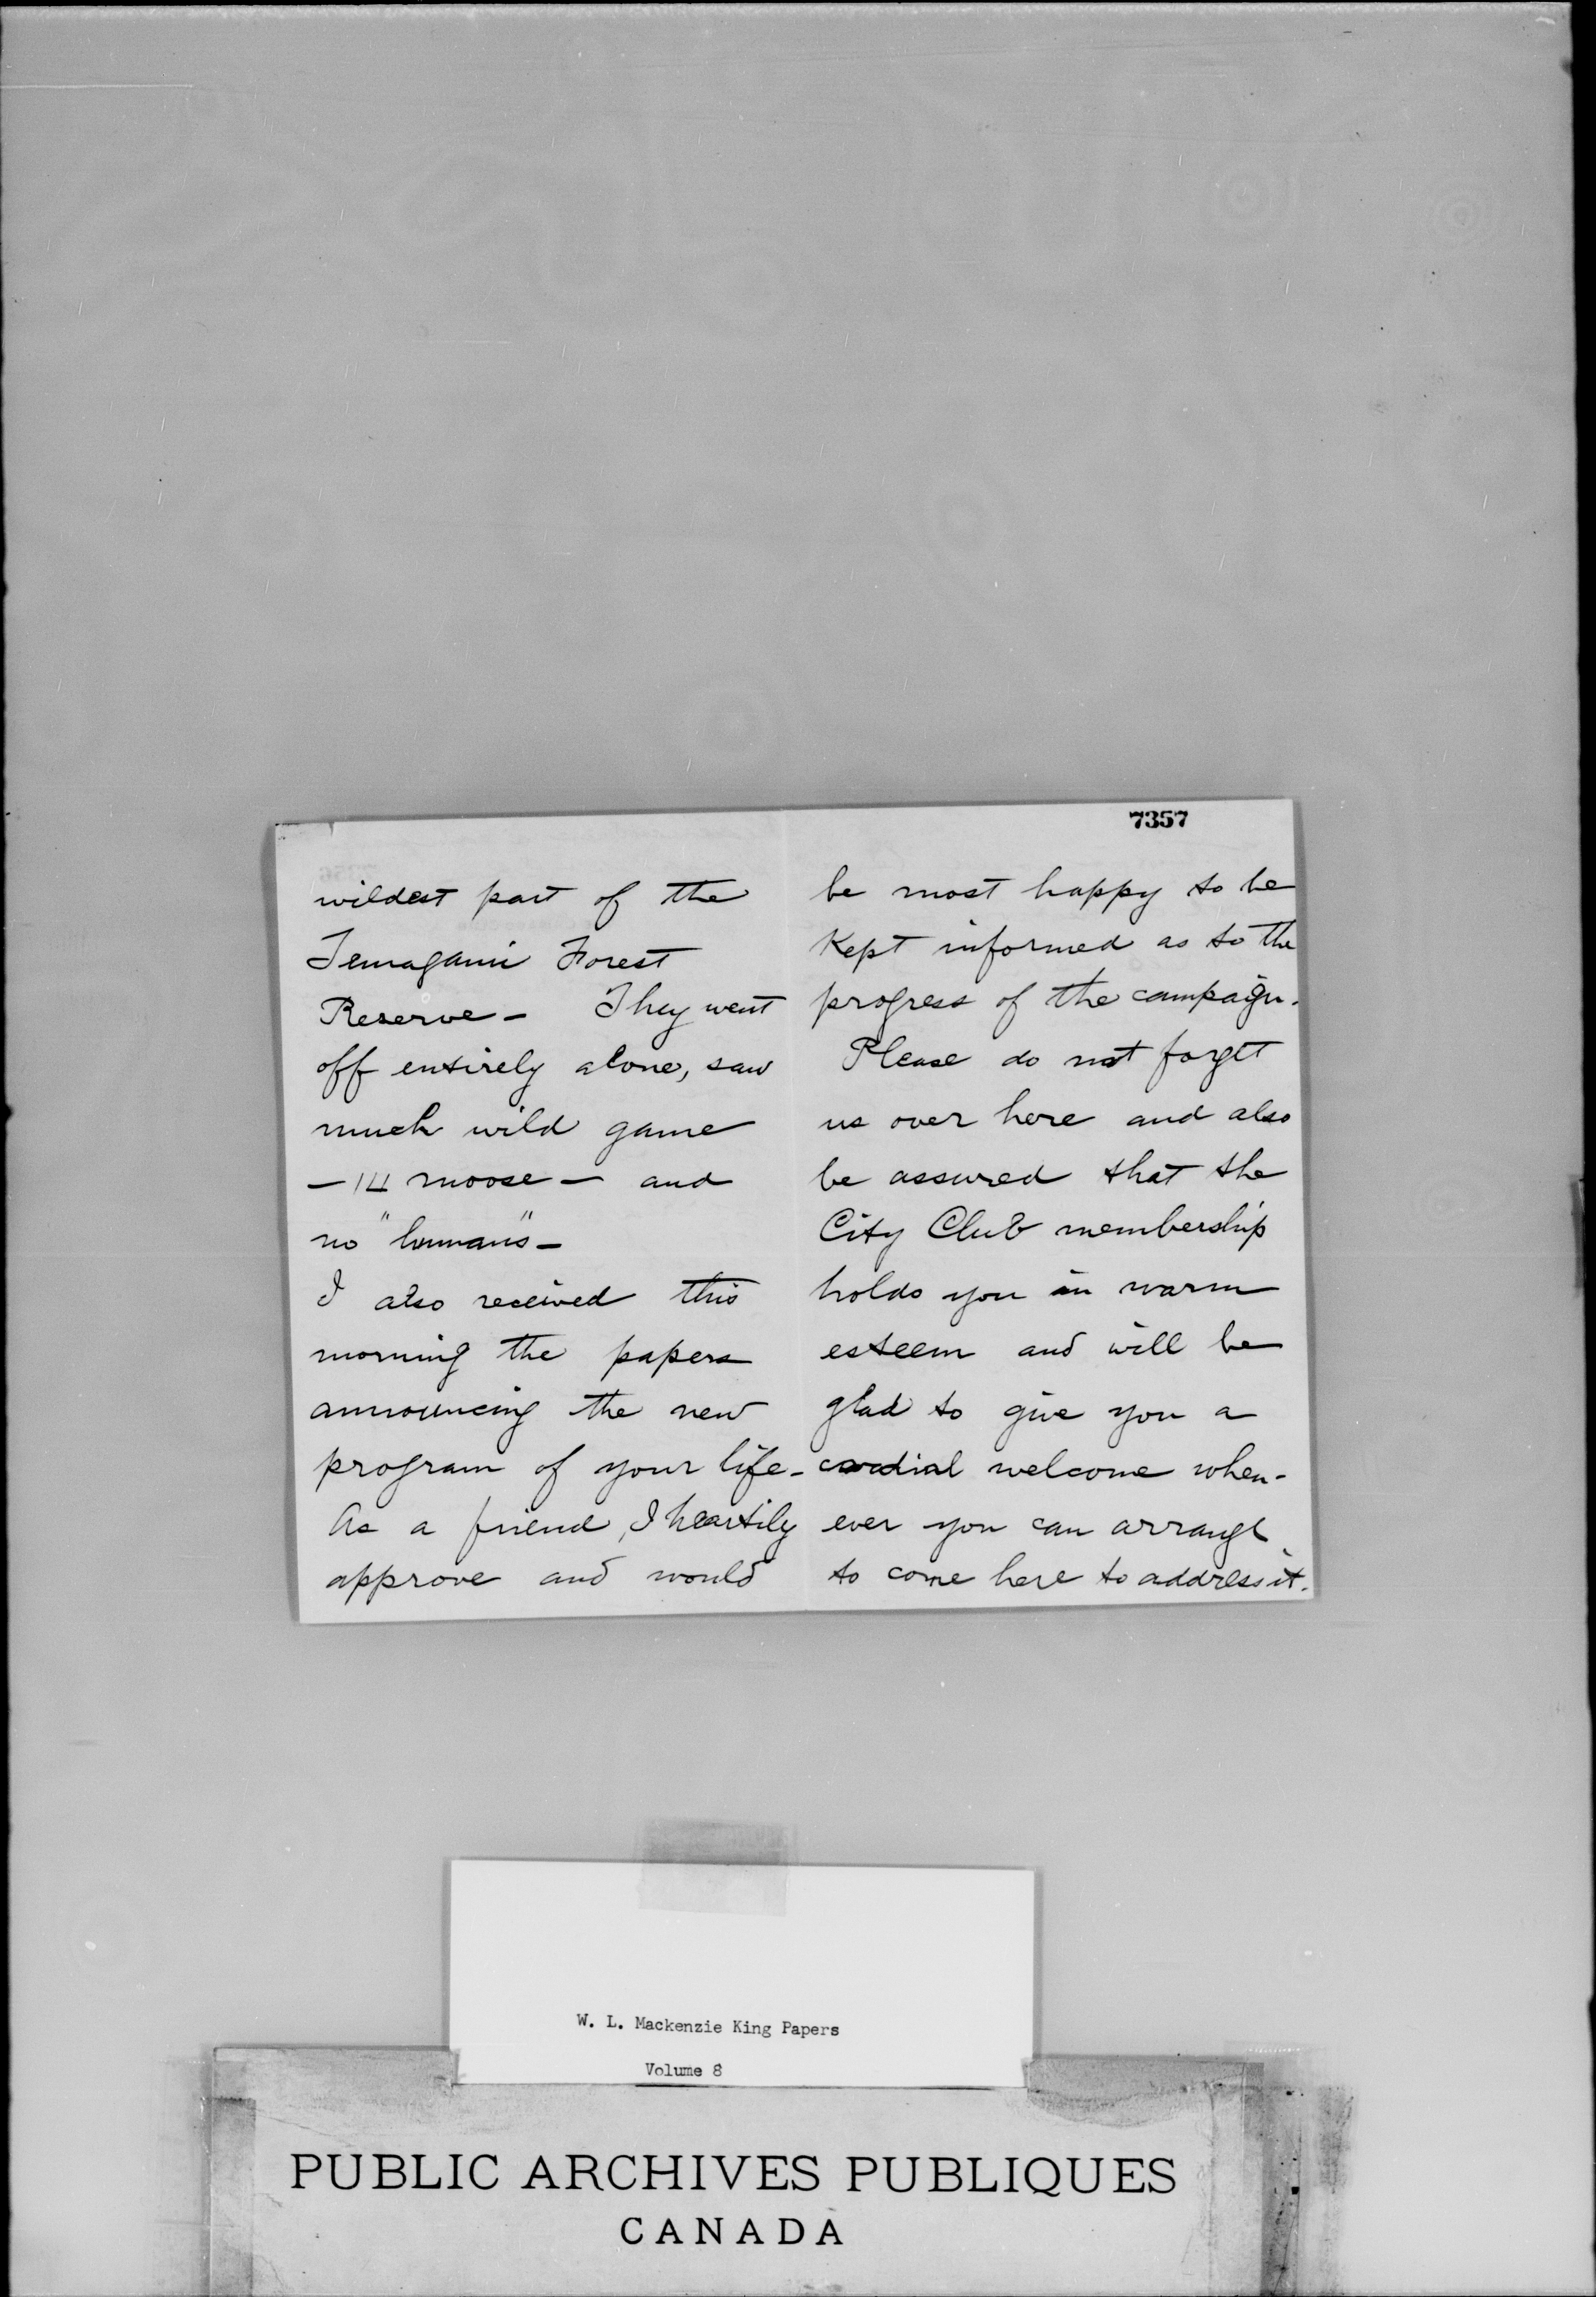 7357
wildest part of the
Temagami Forest
Reserve - They went
off entirely alone, saw
much wild game
- 14 moose - and
no "humans" -
I also received this
morning the papers
announcing the new
program of your life -
As a friend, I heartily
approve and would
be most happy to be
kept informed as to the
progress of the campaign.
Please do not forget
us over here and also
be assured that the
City Club membership
holds you in warm
esteem and will be
glad to give you a
cordial welcome when-
ever you can arrange
to come here to address it.
W. L. Mackenzie King Papers
Volume 8
PUBLIC ARCHIVES PUBLIQUES
CANADA